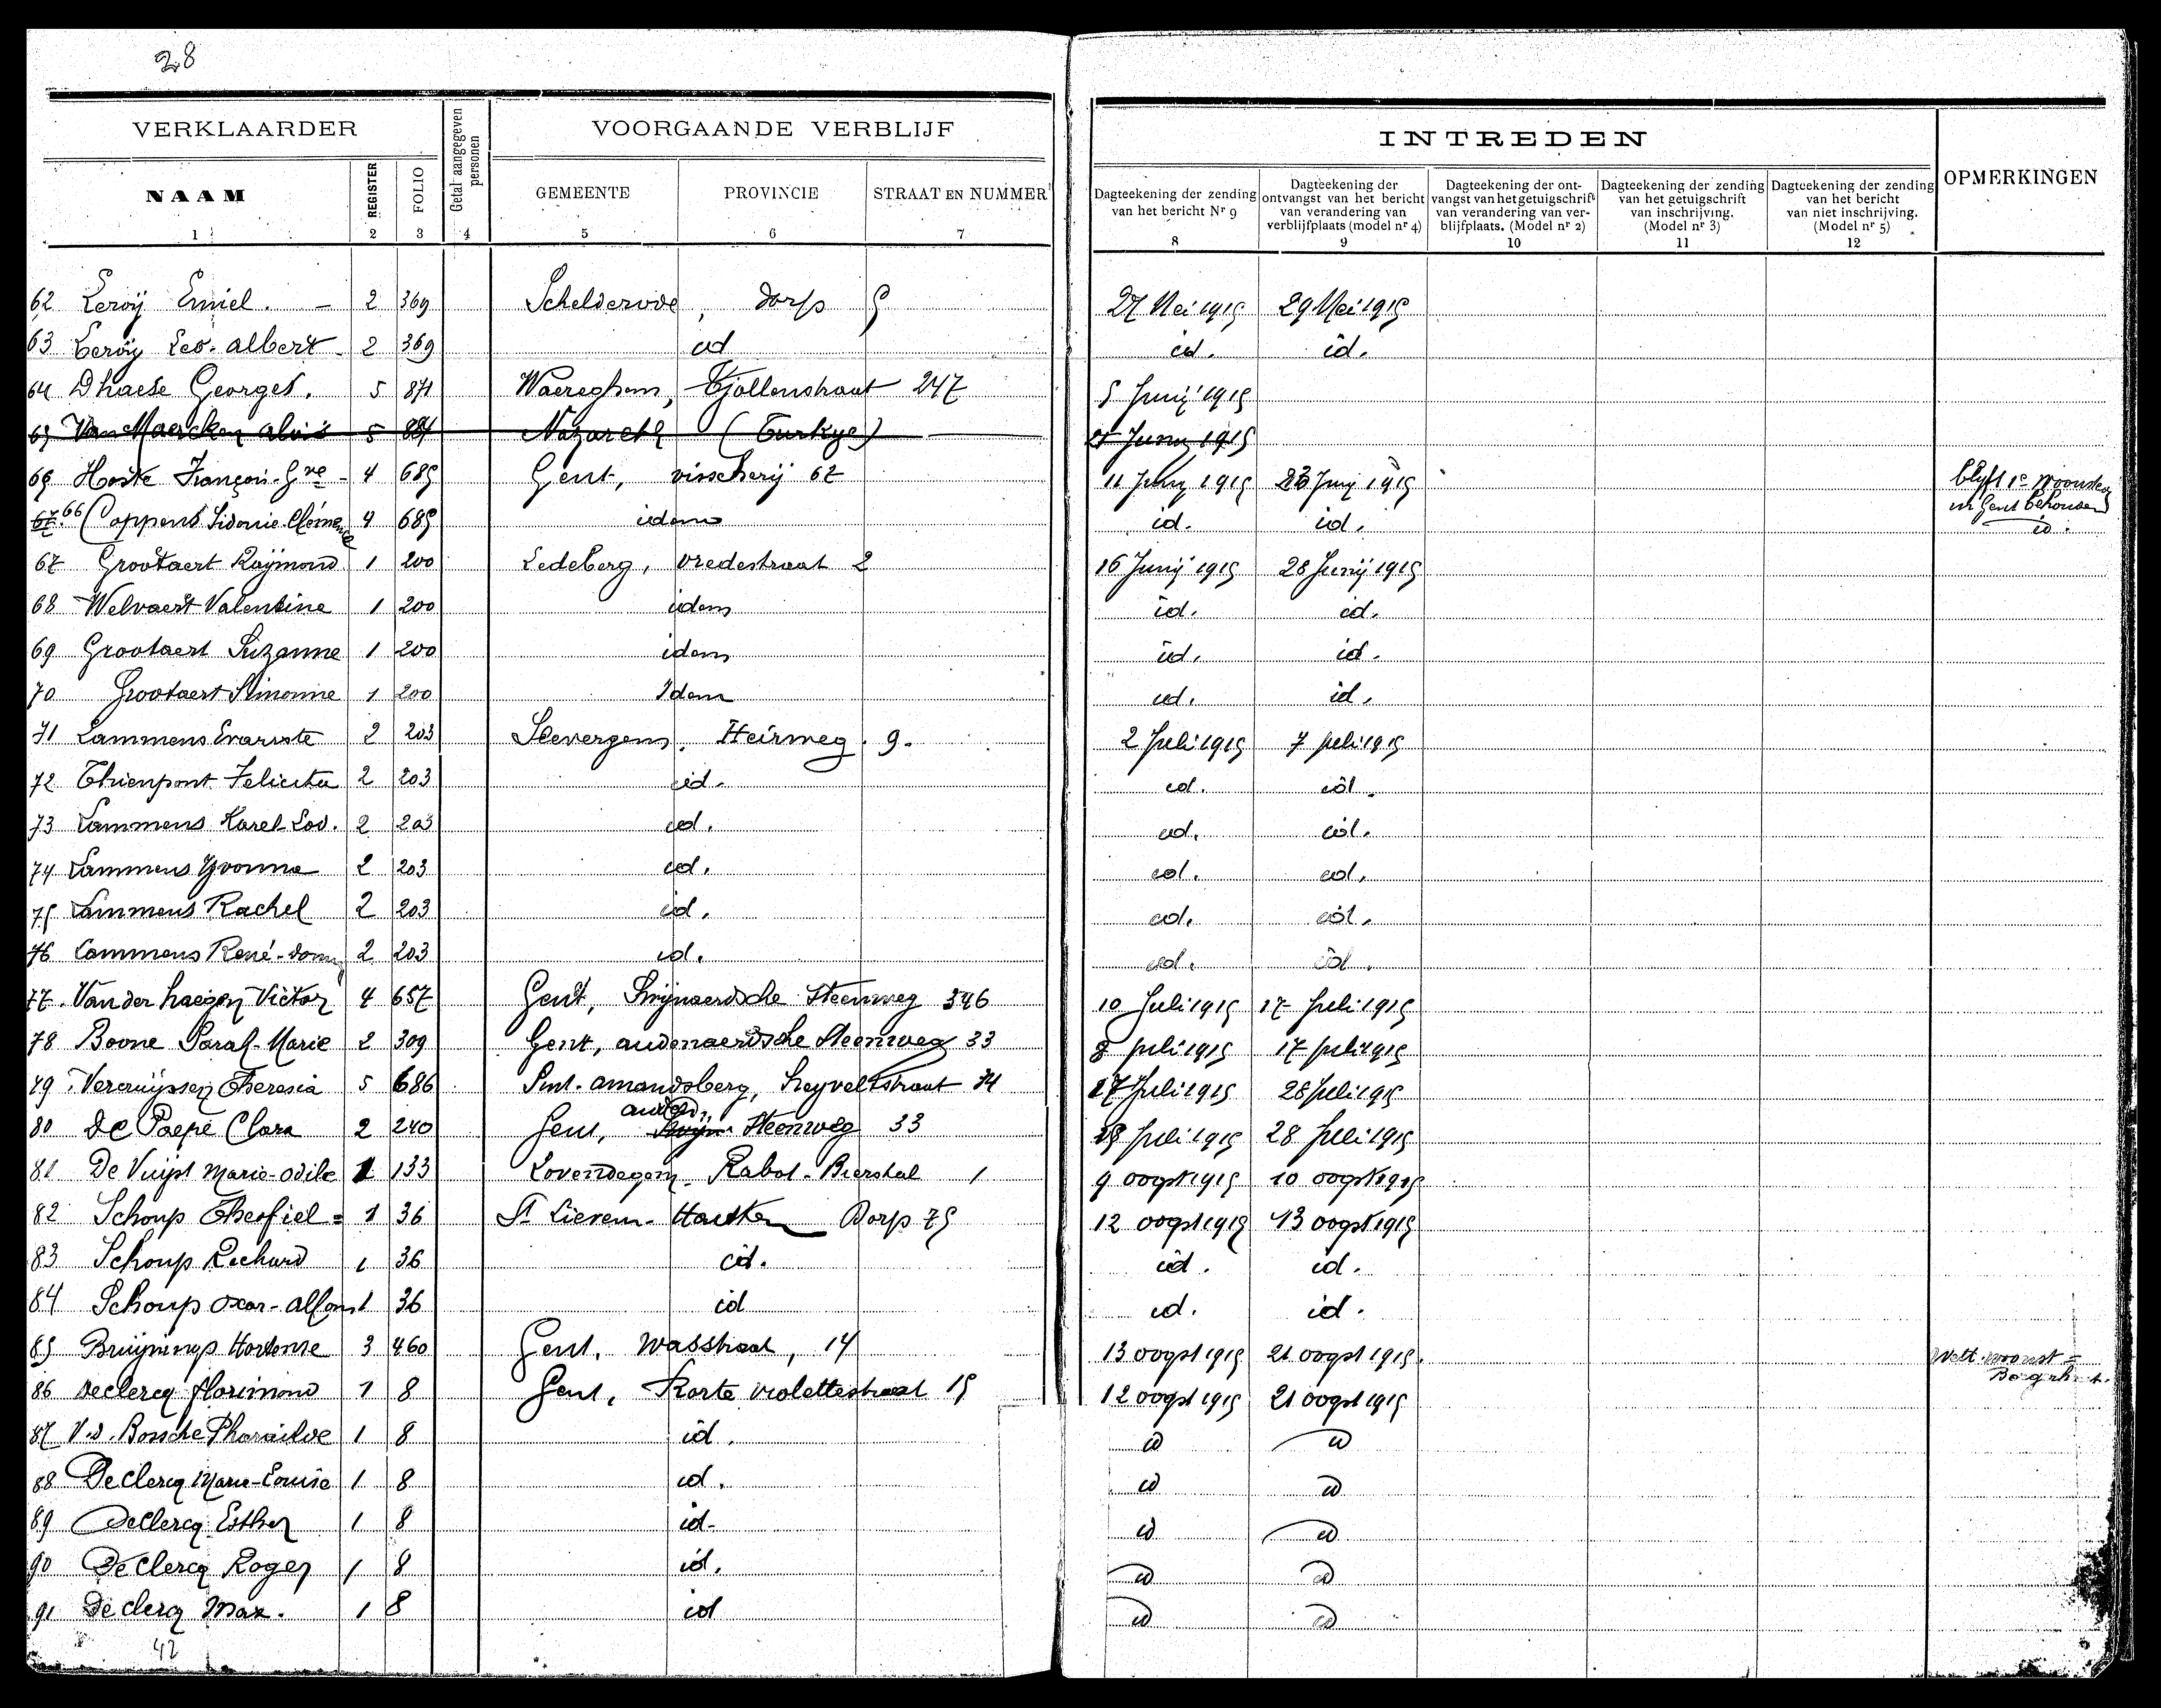 28
VERKLAARDER
Getal aangegeven personen
VOORGAANDE VERBLIJF
INTREDEN
OPMERKINGEN
NAAM
REGISTER
FOLIO
GEMEENTE
PROVINCIE
STRAAT EN NUMMER
Dagteekening der zending van het bericht Nr 9
Dagteekening der ontvangst van het bericht van verandering van verblijfplaats (model nr 4)
Dagteekening der ont-vangst van het getuigschrift van verandering van ver-blijfplaats. (Model nr 2)
Dagteekening der zending van het getuigschrift van inschrijving. (Model nr 3)
Dagteekening der zending van het bericht van niet inschrijving. (Model nr 5)
1 2 3 4 5 6 7 8 9 10 11 12
62 Leroÿ Emiel. - 2 369 Schelderode, dorp 5 27 Mei 1915 29 Mei 1915
63 Leroÿ Leo-albert - 2 369 id id. id.
64 Dhaese Georges. 5 871 Waereghem, Tjollenstraat 247 5 Junÿ 1915
65 Van Maercken aloïs 5 881 Nazareth (Eurkye) Juny 1915
65 Hoste François-Gve - 4 685 Gent, visscherij 62 11 Juny 1915 23 Juny 1915 blyft in Gent behouden
67. 66 Coppens Sidonie Clémence 4 685 idem id. id. id.
67 Grootaert Raÿmond 1 200 Ledeberg, vredestraat 2 16 Junÿ 1915 28 Junÿ 1915
68 Welvaert Valentine 1 200 idem id. id.
69 Grootaert Suzanne 1 200 idem id. id.
70 Grootaert Simonne 1 200 Idem id. id.
71 Lammens Evariste 2 203 Sleverghem. Heirweg. 9. 2 Juli 1915 7 Juli 1915
72 Thienpont Felicita 2 203 id. id. id.
73 Lammens Karel-Lod. 2 203 id. id. id.
74 Lammens Yvonne 2 203 id. id. id.
75 Lammens Rachel 2 203 id. id. id.
76 Lammens René-dom 2 203 id. id. id.
77. Van der haegen Victor 4 657 Gent, Swijnaerdsche steenweg 346 10 Juli 1915 17 Juli 1915
78 Boone Sarah-Marie 2 309 Gent, audenaerdsche Steenweg 33 8 juli 1915 17 juli 1915
79 Vercruÿssen Theresia 5 686 Sint-amandsberg, heyveltstraat 74 27 Juli 1915 28 juli 1915
80 De Paepe Clara 2 240 Gent, auden. Steenweg 33 Juli 1915 28 Juli 1915
81 De Vuijst Marie-Odile 1 133 Lovendegem. Rabot-Bierstal 1 9 oogst 1915 10 oogst 1915
82 Schoup Theofiel = 1 36 St Lieven-Hautem Dorp 75 12 oogst 1915 13 oogst 1915
83 Schoup Richard 1 36 id. id. id.
84 Schoup Oscar-Alfons 1 36 id id. id.
85 Bruÿnings Hortense 3 460 Gent. Wasstraat, 14 13 oogst 1915 21 oogst 1915. Wett. woonst =
86 Declercq florimond 1 8 Gent, Korte violettestraat 15 12 oogst 1915 21 oogst 1915
87 V.d. Bossche Pharaïlde 1 8 id. id id
88 De Clercq Marie-Louise 1 8 id. id id
89 Declercq Esther 1 8 id. id id
90 De Clercq Roger 1 8 id. id id
91 De clercq Max. 1 8 id id id
42